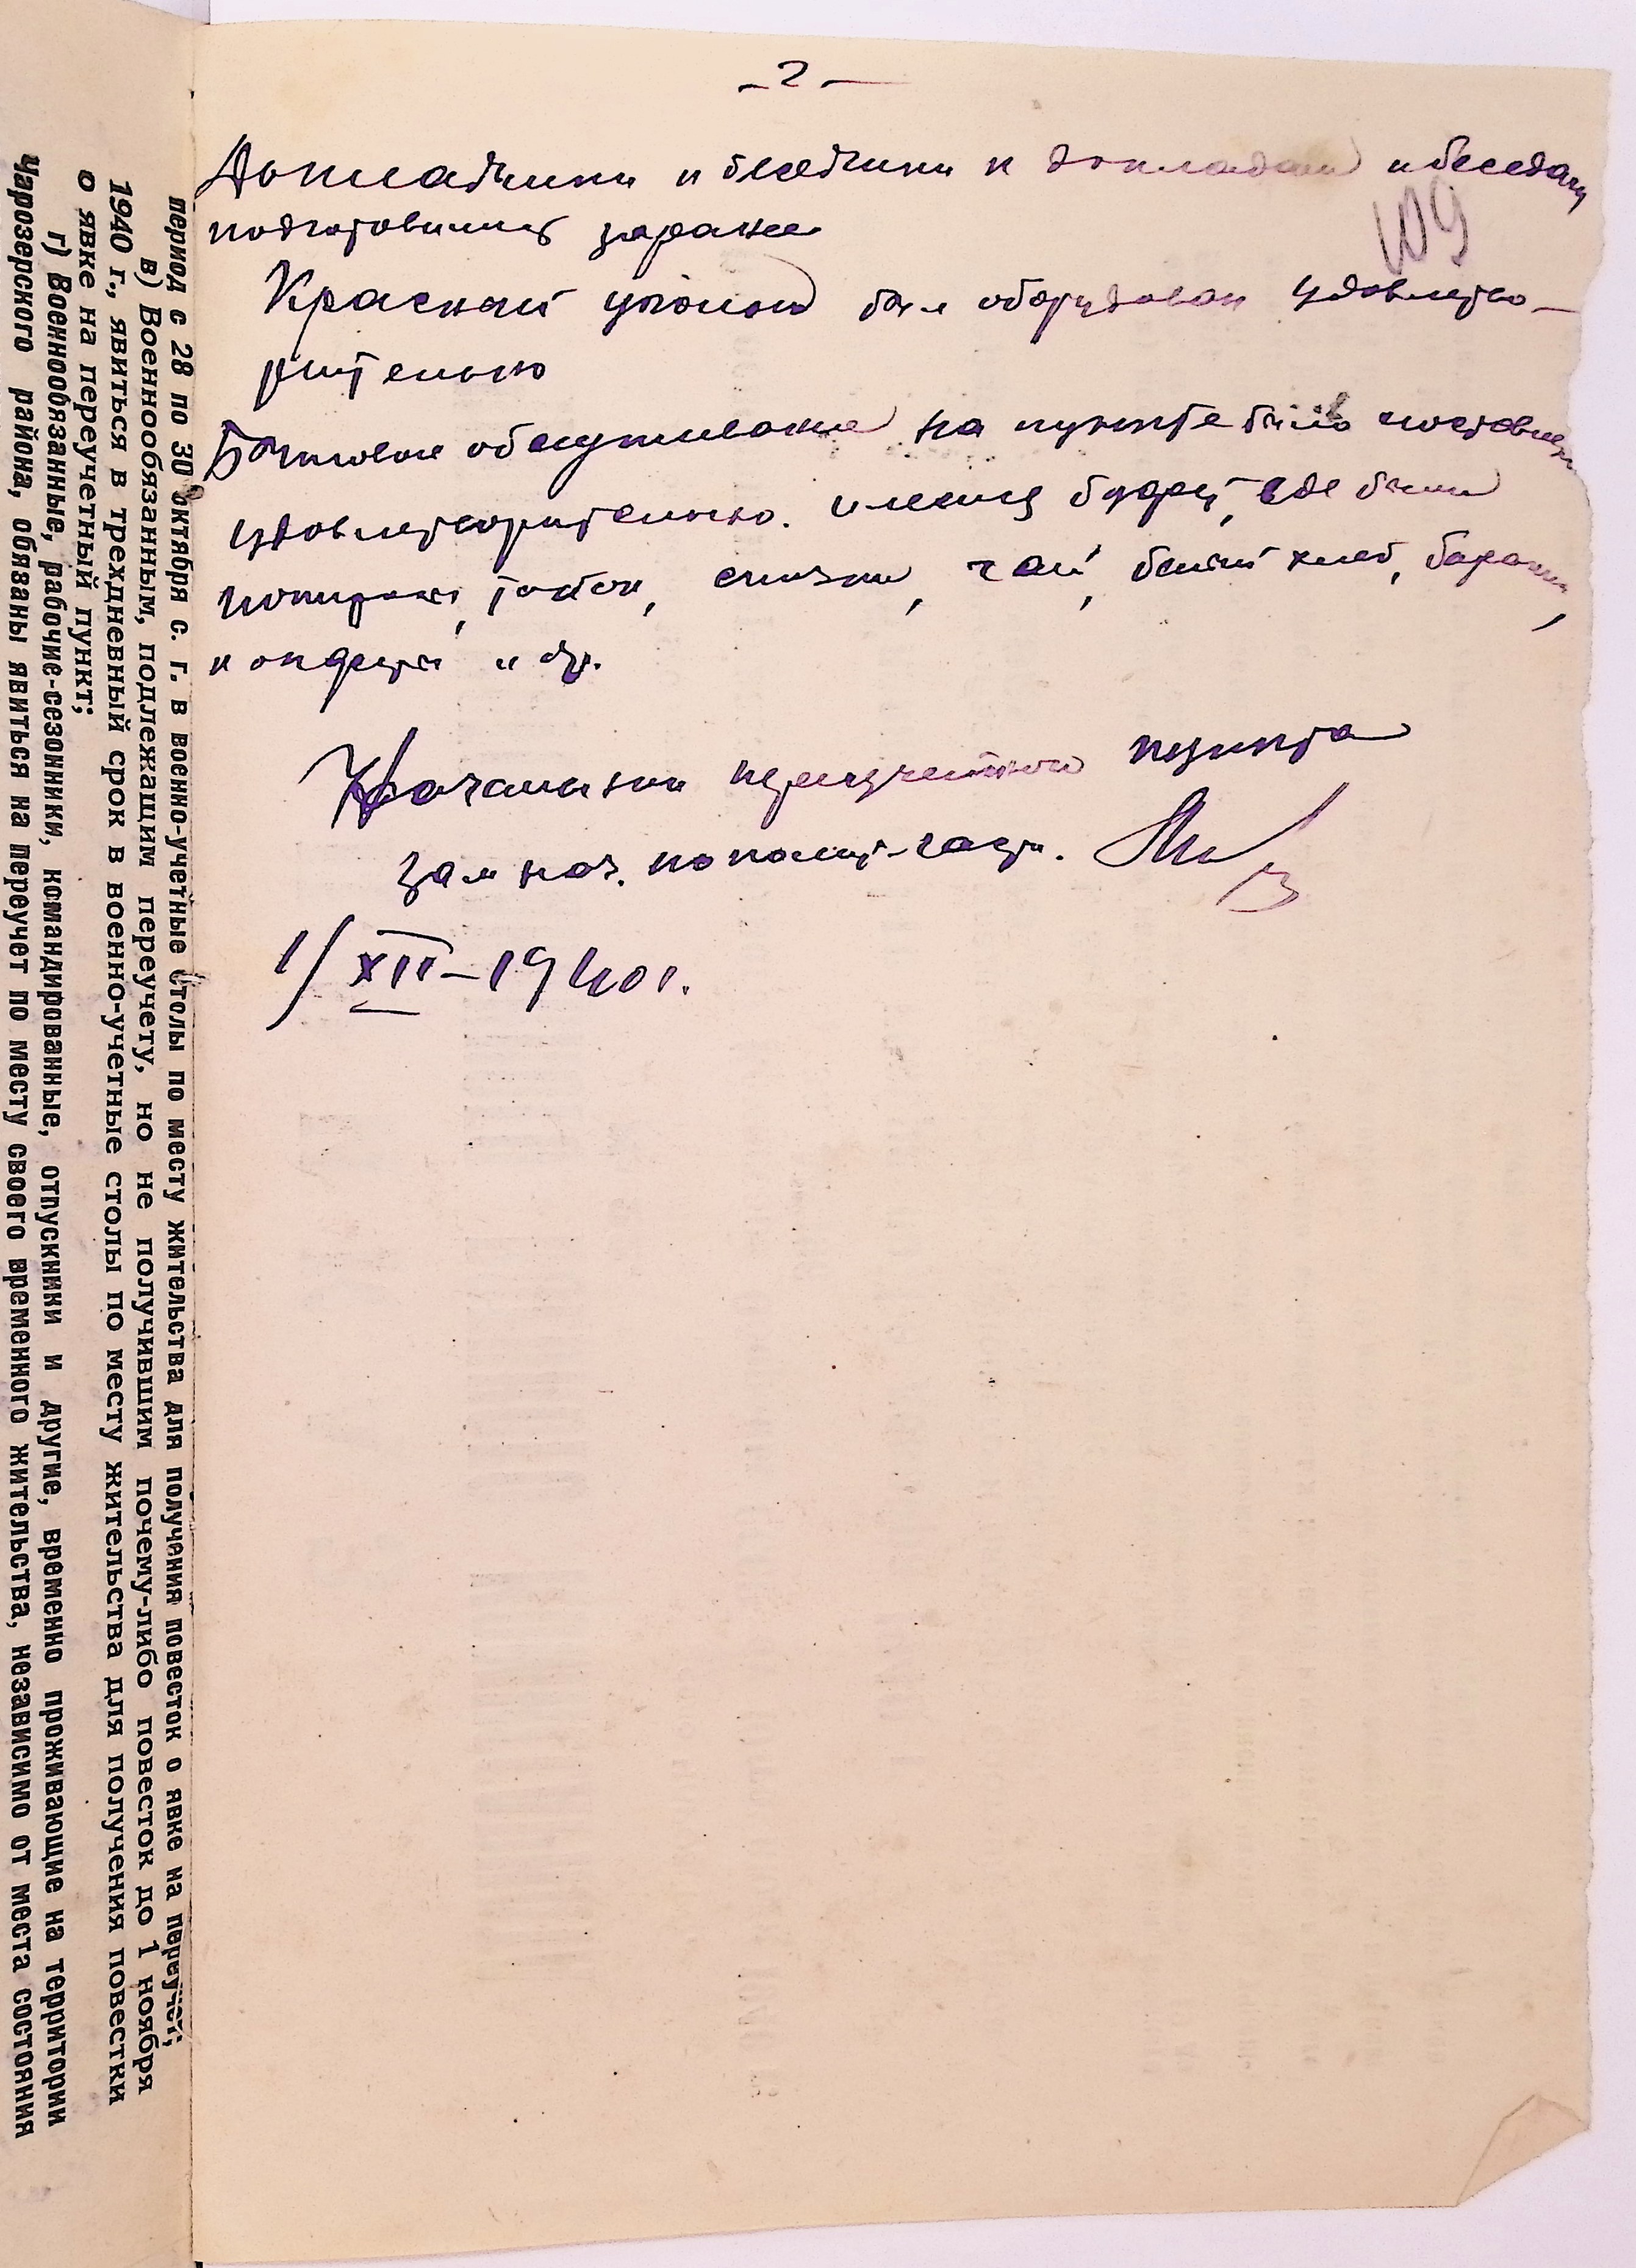 – 2 –
109
Докладчики и беседчики к докладам и беседам
подготовились заранее
Красный уголок был оборудован удовлетво-
рительно
Бытовое обслуживание на пункте было поставлено
удовлетворительно. имелся буфет, где были
папиросы, табак, спички, чай, белый хлеб, баранки,
конфеты и др.
Начальник переучетного пункта
зам нач. по полит-части.
1/XII–1940г.
период с 28 по 30 октября с. г. в военно-учетные столы по месту жительства для получения повесток о явке на переучет;
в) Военнообязанным, подлежащим переучету, но не получившим почему-либо повесток до 1 ноября
1940 г., явиться в трехдневный срок в военно-учетные столы по месту жительства для получения повестки
о явке на переучетный пункт;
г) Военнообязанные, рабочие-сезонники, командированные, отпускники и другие, временно проживающие на территории
Чарозерского района, обязаны явиться на переучет по месту своего временного жительства, независимо от места состояния